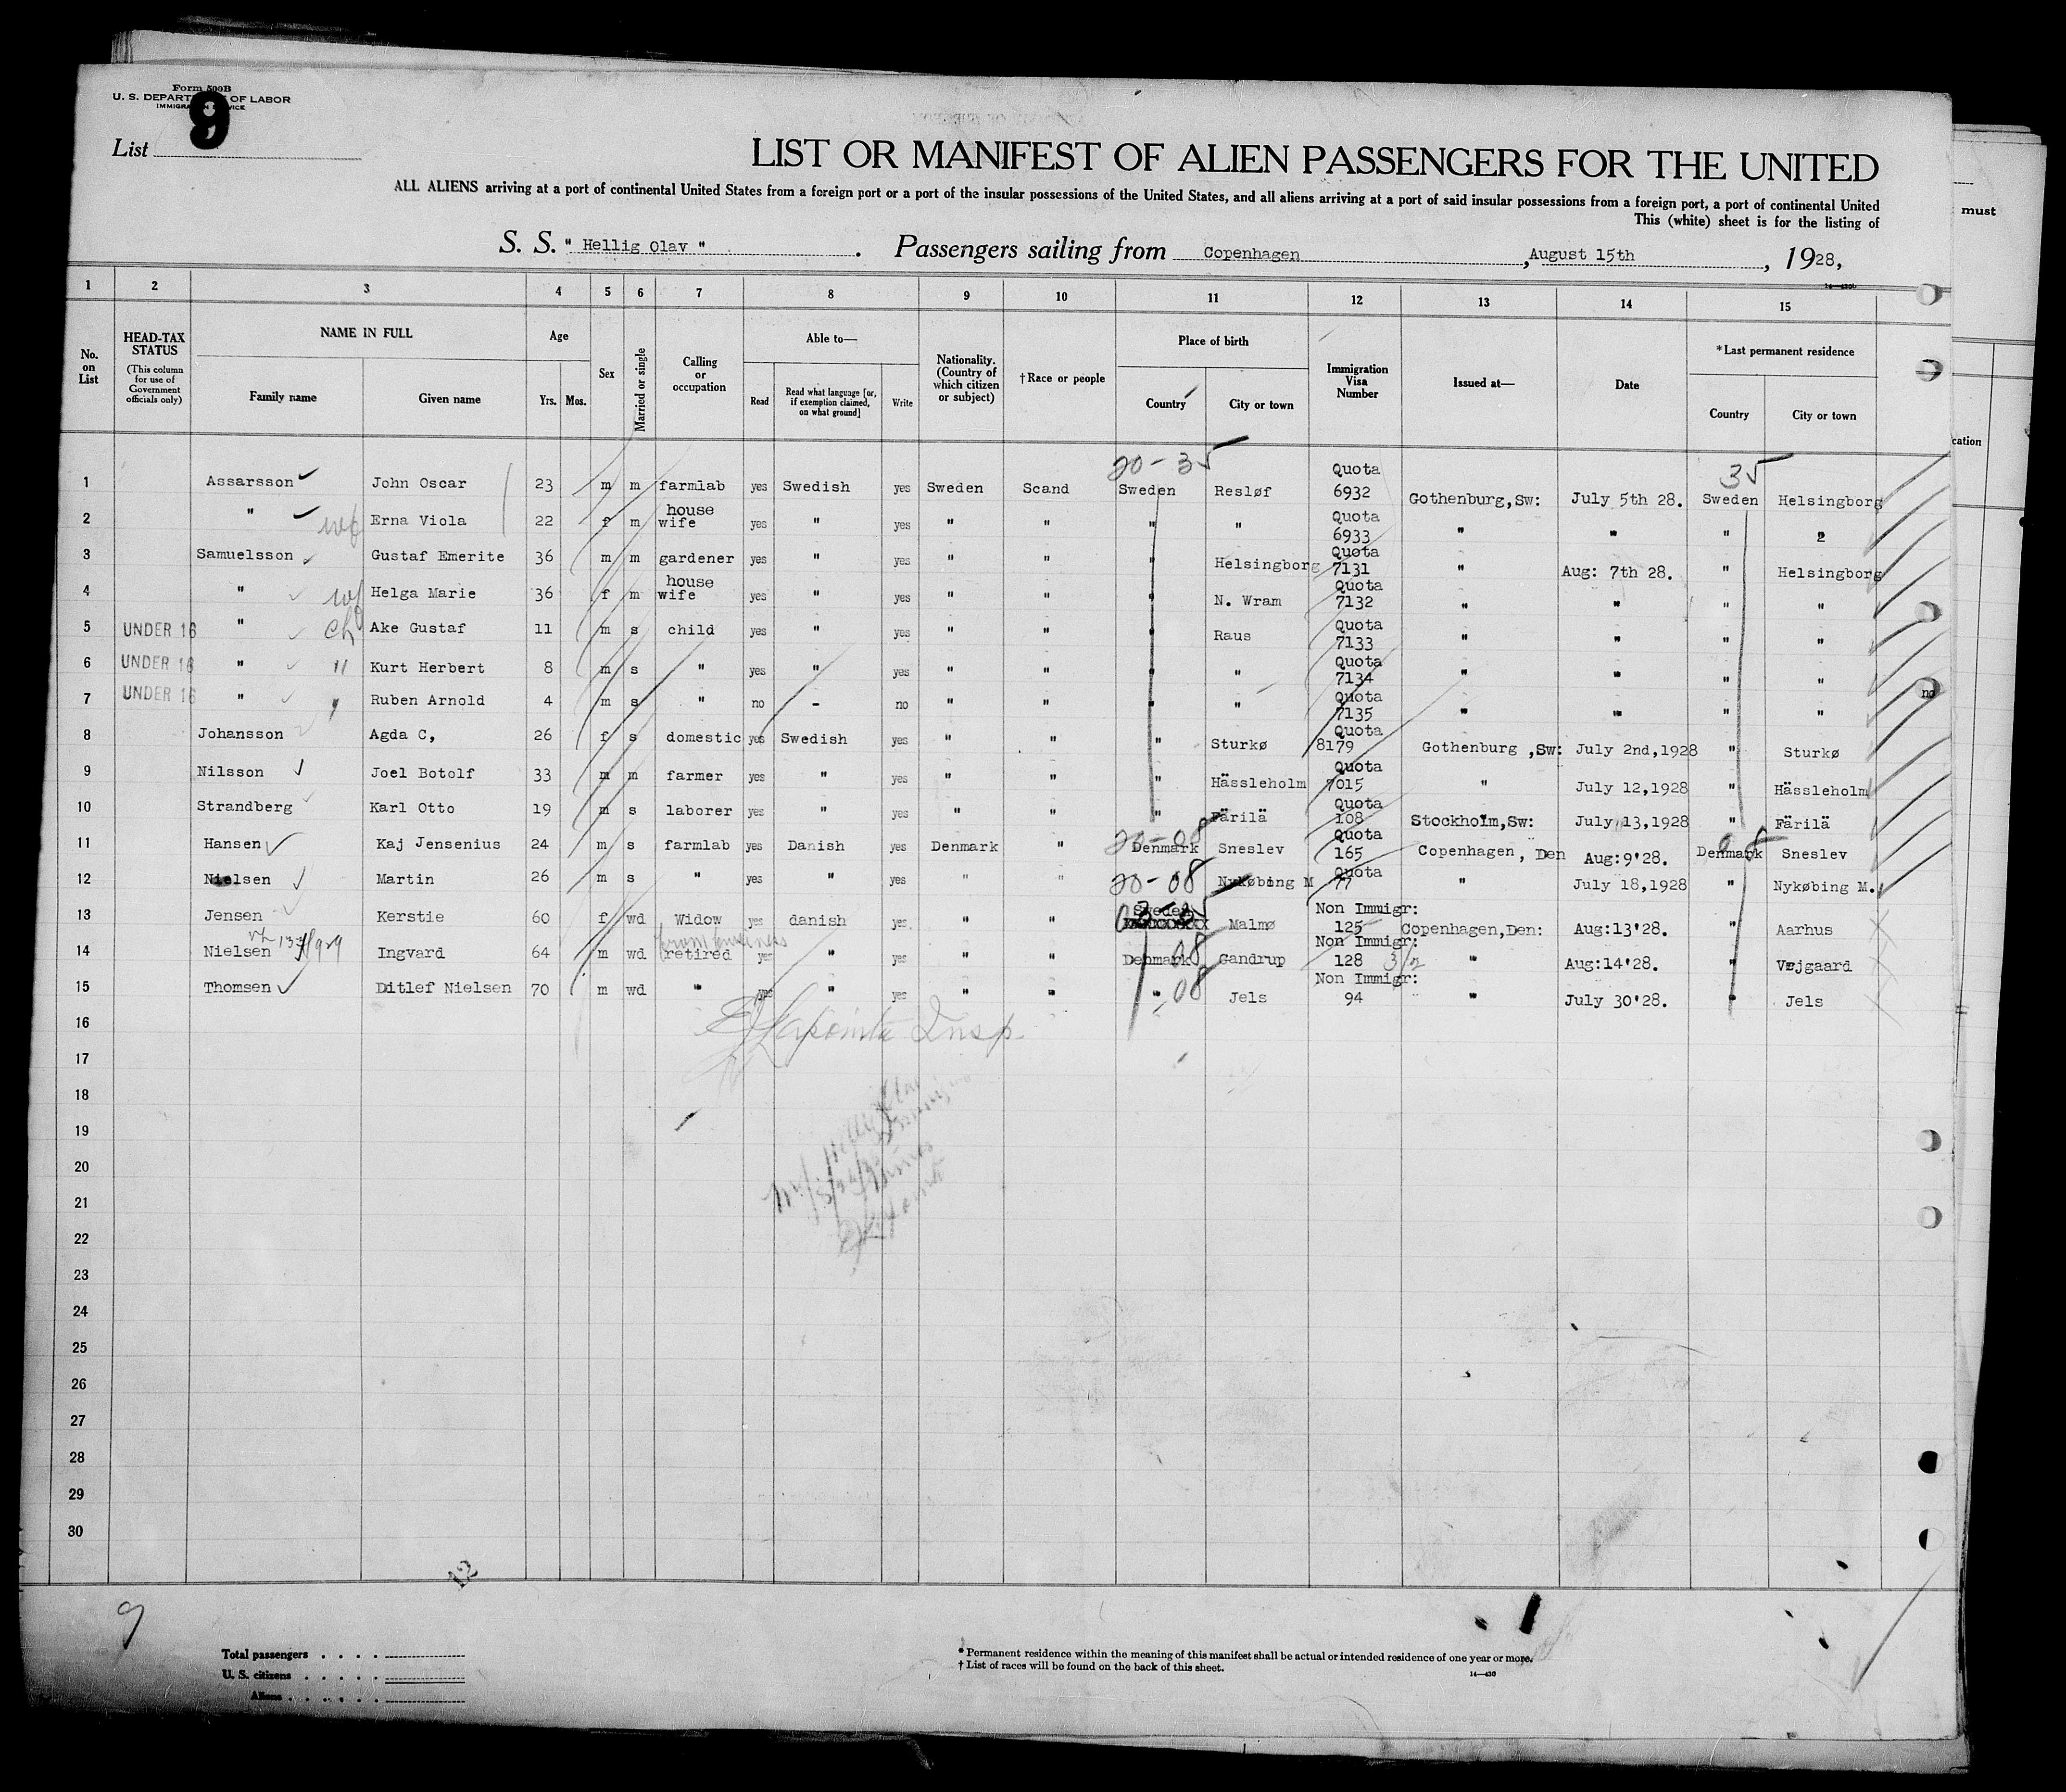 Form 500B
U. S. DEPARTMENT OF LABOR
IMMIGRATION SERVICE
List 9
LIST OR MANIFEST OF ALIEN PASSENGERS FOR THE UNITED
ALL ALIENS arriving at a port of continental United States from a foreign port or a port of the insular possessions of the United States, and all aliens arriving at a port of said insular possessions from a foreign port, a port of continental United
must
This (white) sheet is for the listing of
S. S. " Hellig Olav " . Passengers sailing from Copenhagen , August 15th , 1928,
1 2 3 4 5 6 7 8 9 10 11 12 13 14 15
No. on List HEAD-TAX STATUS (This column for use of Government officials only) NAME IN FULL Family name Given name Age Yrs. Mos. Sex Married or single Calling or occupation Able to— Read Read what language [or, if exemption claimed, on what ground] Write Nationality. (Country of which citizen or subject) †Race or people Place of birth Country City or town Immigration Visa Number Issued at— Date *Last permanent residence Country City or town
cation
20-35 35
1 Assarsson John Oscar 23 m m farmlab yes Swedish yes Sweden Scand Sweden Resløf Quota 6932 Gothenburg,Sw: July 5th 28. Sweden Helsingborg
2 " wf Erna Viola 22 f m house wife yes " yes " " " " Quota 6933 " " " "
3 Samuelsson Gustaf Emerite 36 m m gardener yes " yes " " " Helsingborg Quota 7131 " Aug: 7th 28. " Helsingborg
4 " wf Helga Marie 36 f m house wife yes " yes " " " N. Wram Quota 7132 " " " "
5 UNDER 16 " ch Ake Gustaf 11 m s child yes " yes " " " Raus Quota 7133 " " " "
6 UNDER 16 " " Kurt Herbert 8 m s " yes " yes " " " " Quota 7134 " " " "
7 UNDER 16 " " Ruben Arnold 4 m s " no - no " " " " Quota 7135 " " " " no
8 Johansson Agda C, 26 f s domestic yes Swedish yes " " " Sturkø Quota 8179 Gothenburg ,Sw: July 2nd,1928 " Sturkø
9 Nilsson Joel Botolf 33 m m farmer yes " yes " " " Hässleholm Quota 7015 " July 12,1928 " Hässleholm
10 Strandberg Karl Otto 19 m s laborer yes " yes " " " Färilä Quota 108 Stockholm,Sw: July 13,1928 " Färilä
20-08 08
11 Hansen Kaj Jensenius 24 m s farmlab yes Danish yes Denmark " Denmark Sneslev Quota 165 Copenhagen, Den Aug:9'28. Denmark Sneslev
12 Nielsen Martin 26 m s " yes " yes " " 20-08 Nykøbing M Quota 77 " July 18,1928 " Nykøbing M.
13 Jensen Kerstie 60 f wd Widow yes danish yes " " Sweden Malmø Non Immigr: 125 Copenhagen,Den: Aug:13'28. " Aarhus
14 Nielsen Ingvard 64 m wd retired from business yes " yes " " Denmark 08 Gandrup Non Immigr: 128 " Aug:14'28. " Vejgaard
15 Thomsen Ditlef Nielsen 70 m wd " yes " yes " " " 08 Jels Non Immigr: 94 " July 30'28. " Jels
16
Insp.
17
18
19
20
21
22
23
24
25
26
27
28
29
30
12
9
Total passengers . . . .
U. S. citizens . . . . .
Aliens . . . . . .
* Permanent residence within the meaning of this manifest shall be actual or intended residence of one year or more.
† List of races will be found on the back of this sheet.
14—430